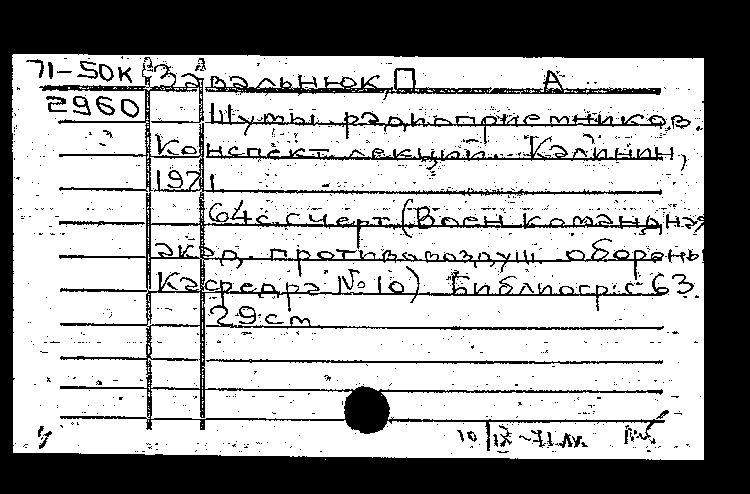 71-50к Завальнюк, П А
2960 Шумы радиоприемников.
Конспект лекций. Калинин,
1971.
64с. с черт. (Воен. командная
акад. противовоздуш. обороны
Кафедра №10) Библиогр.: с. 63.
29 cm
10 IX-71